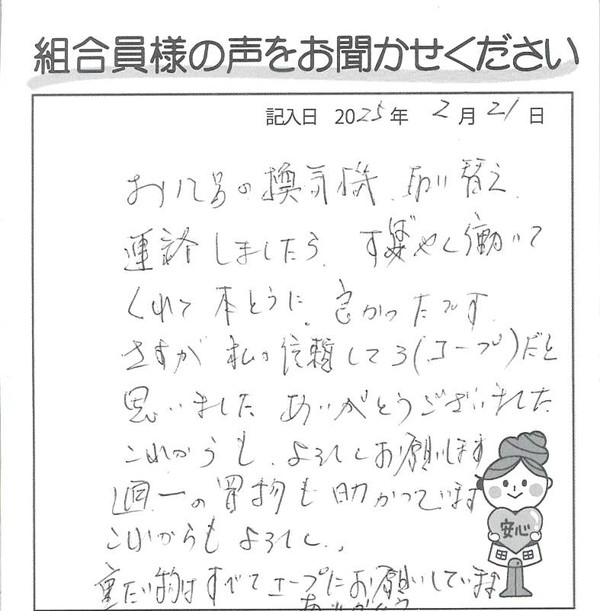 組合員様の声をお聞かせください
記入日 2025年 2月 21日
の換気機 取り替え
しましたら、すばやく働いて
くれて本とうに、良かったです
さすが私の信頼してる(コープ)だと
思いました ありがとうございました
これからも、よろしくお願いします
週一の買物も助かっています
これからもよろしく、
安心
重たい物はすべてコープにお願いしています
ありがとう